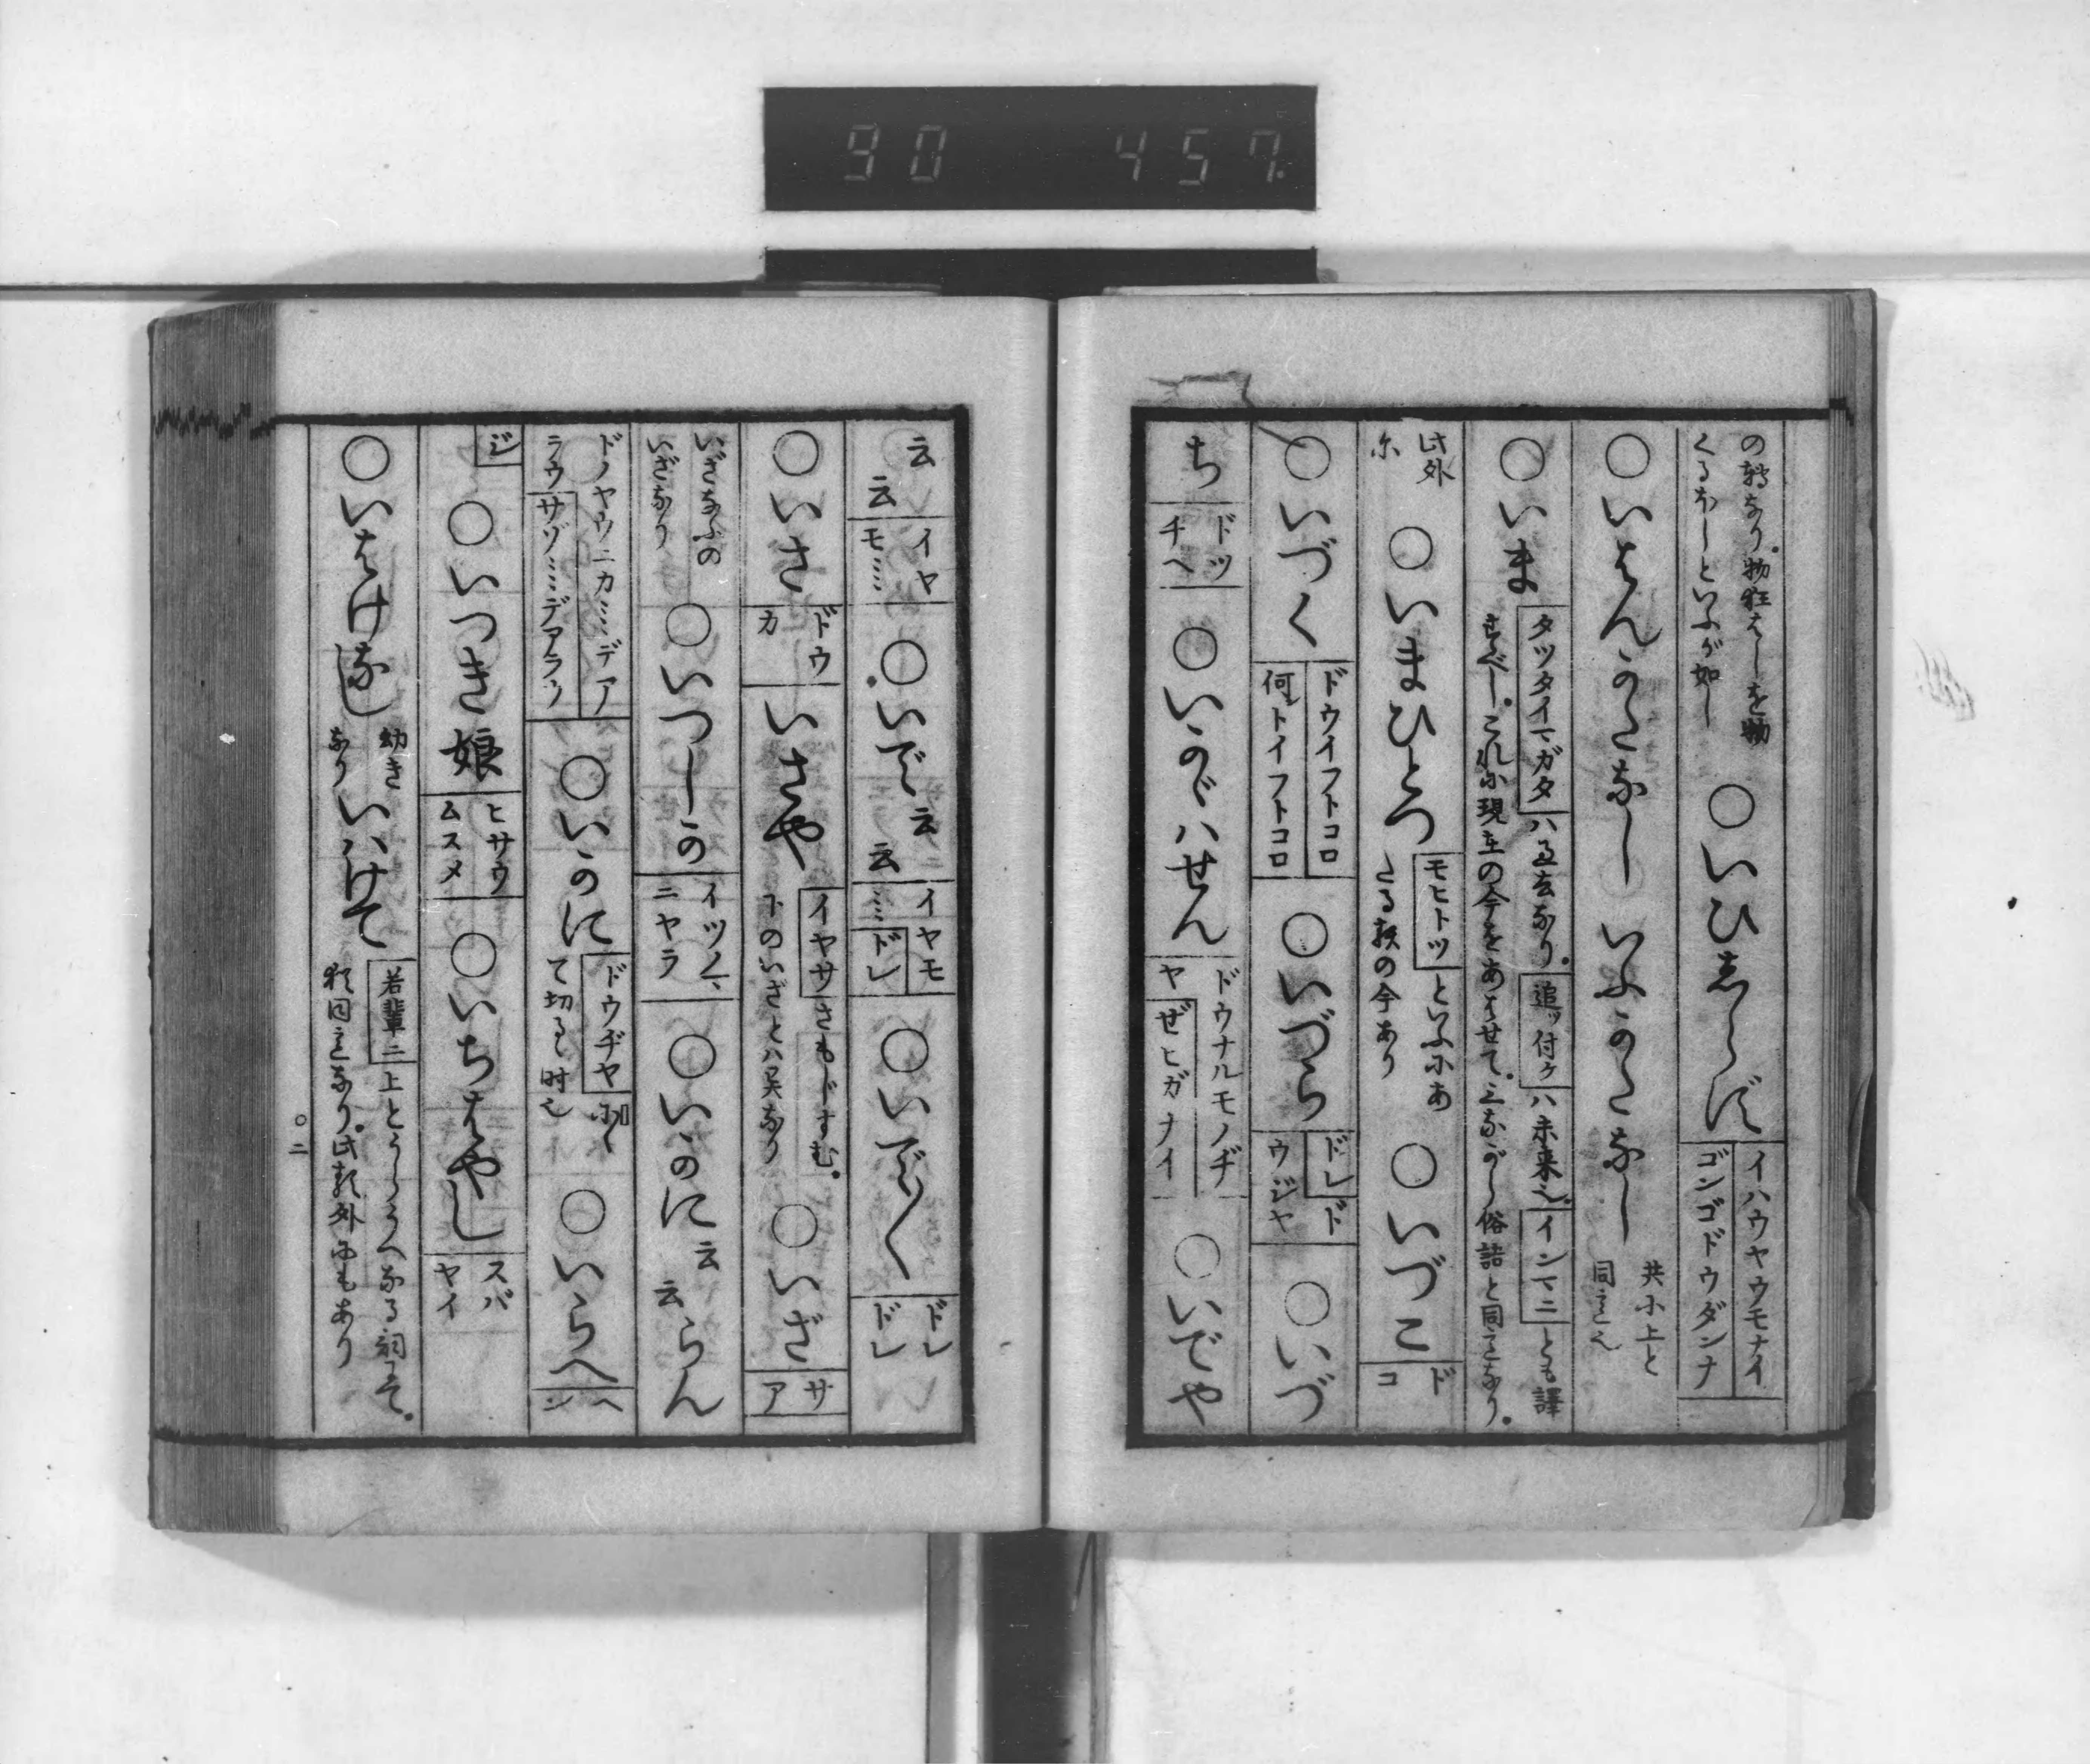 90 457.
の轉なり。物狂はしを物
くるほしといふが如し
○いひしらず
イハウヤウモナイ
ゴンゴドウダンナ
○いはんかたなし いふかたなし
共に上と
同じ也
○いま
タツタイマガタ ハ過去なり。追ッ付ケ ハ未来也。インマニ とも譯
すべし。これに現在の今をあはせて。三ながら俗語と同じなり。
此外
に
○いまひとつ
モヒトツ といふにあ
たる類の今あり
○いづこ
ド
コ
○いづく
ドウイフトコロ
何トイフトコロ
○いづら
ドレ ド
ウジヤ
○いづ
ち
ドッ
チヘ
○いかゞハせん
ドウナルモノヂ
ヤ ぜヒガナイ
○いでや
云
云
イヤ
モ…
○いで云云
イヤモ
… ドレ
○いで〳〵
ドレ
ドレ
○いさ
ドウ
カ
いさや
イヤサ さもじすむ。
下のいざとハ異なり
○いざ
サ
ア
いざなふの
いざなり
○いつしか
イツノマ
ニヤラ
○いかに云云らん
ドノヤウニカ…デア
ラウ サゾ…デアラウ
○いかに
ドウヂヤ 如く
て切るゝ時也
○いらへ
ヘ
ン
ジ
○いつき娘
ヒサウ
ムスメ
○いちはやし
スバ
ヤイ
○いはけなし
幼き
なり
いハけて
若輩ニ 上とうらうへなる詞にて。
類同じなり。此類外にもあり
○二